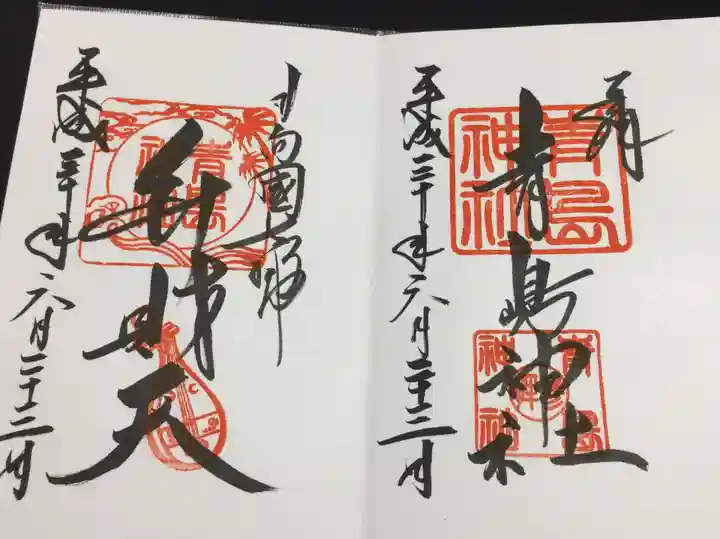 奉拝
青島
神社
青島神社
青島
神社
平成三十年六月二十三日
日向國一ノ宮
青島
神社
弁財天
平成三十年六月二十三日